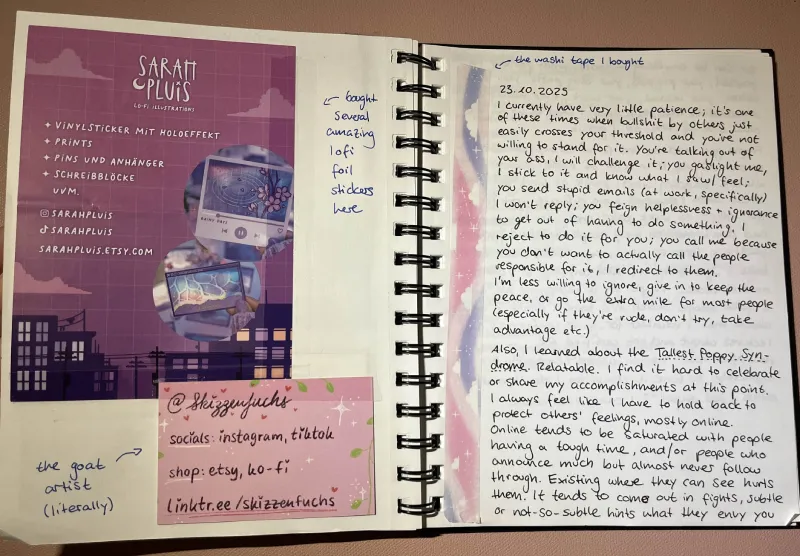 SARAH
PLUIS
LO-FI ILLUSTRATIONS
✦ VINYLSTICKER MIT HOLOEFFEKT
✦ PRINTS
✦ PINS UND ANHÄNGER
✦ SCHREIBBLÖCKE
UVM.
SARAHPLUIS
SARAHPLUIS
SARAHPLUIS.ETSY.COM
← bought
several
amazing
lofi
foil
stickers
here
@skizzenfuchs
socials: instagram, tiktok
shop: etsy, ko-fi
linktr.ee/skizzenfuchs
the goat
artist
(literally)
← the washi tape I bought
23.10.2025
I currently have very little patience; it's one
of these times when bullshit by others just
easily crosses your threshold and you're not
willing to stand for it. You're talking out of
your ass, I will challenge it; you gaslight me,
I stick to it and know what I saw/feel;
you send stupid emails (at work, specifically)
I won't reply; you feign helplessness + ignorance
to get out of having to do something. I
reject to do it for you; you call me because
you don't want to actually call the people
responsible for it, I redirect to them.
I'm less willing to ignore, give in to keep the
peace, or go the extra mile for most people
(especially if they're rude, don't try, take
advantage etc.)
Also, I learned about the Tallest Poppy Syn-
drome. Relatable. I find it hard to celebrate
or share my accomplishments at this point.
I always feel like I have to hold back to
protect others' feelings, mostly online.
Online tends to be saturated with people
having a tough time, and/or people who
announce much but almost never follow
through. Existing where they can see hurts
them. It tends to come out in fights, subtle
or not-so-subtle hints what they envy you